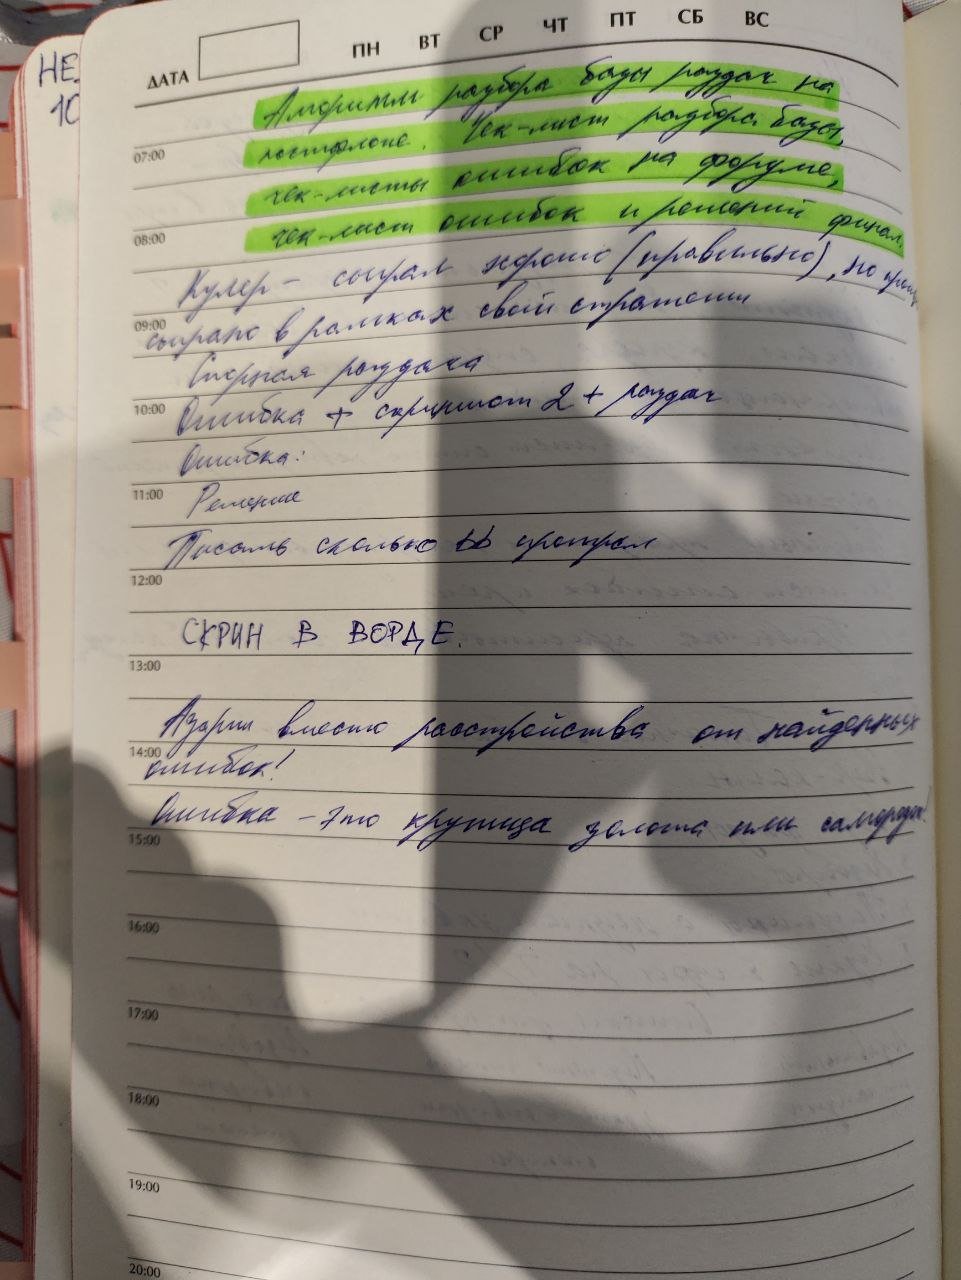 НЕ
10
ДАТА ПН ВТ СР ЧТ ПТ СБ ВС
Алгоритм разбора базы раздач на
07:00
постфлопе. Чек-лист разбора базы,
чек-листы ошибок на форуме,
08:00
чек-лист ошибок и решений финал.
Кулер - сыграл хорошо (правильно), но
09:00
сыграно в рамках своей стратегии
Спорная раздача
10:00
Ошибка + скриншот 2 + раздач
Ошибка:
11:00
Решение
Писать сколько ББ проиграл
12:00
СКРИН В ВОРДЕ.
13:00
Азарт вместо расстройства от найденных
14:00
ошибок!
Ошибка - это крупица золота или самородок!
15:00
16:00
17:00
18:00
19:00
20:00